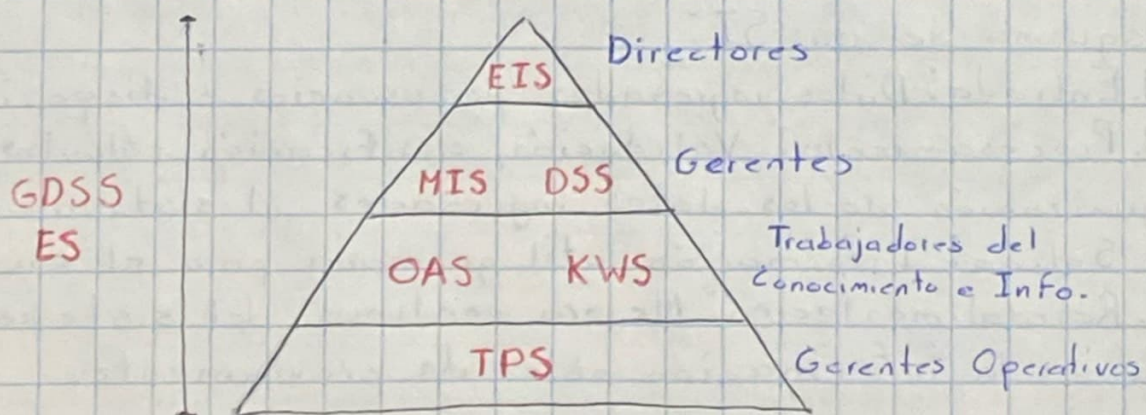 EIS
Directores
MIS DSS
Gerentes
GDSS
ES
OAS KWS
Trabajadores del
Conocimiento e Info.
TPS
Gerentes Operativos